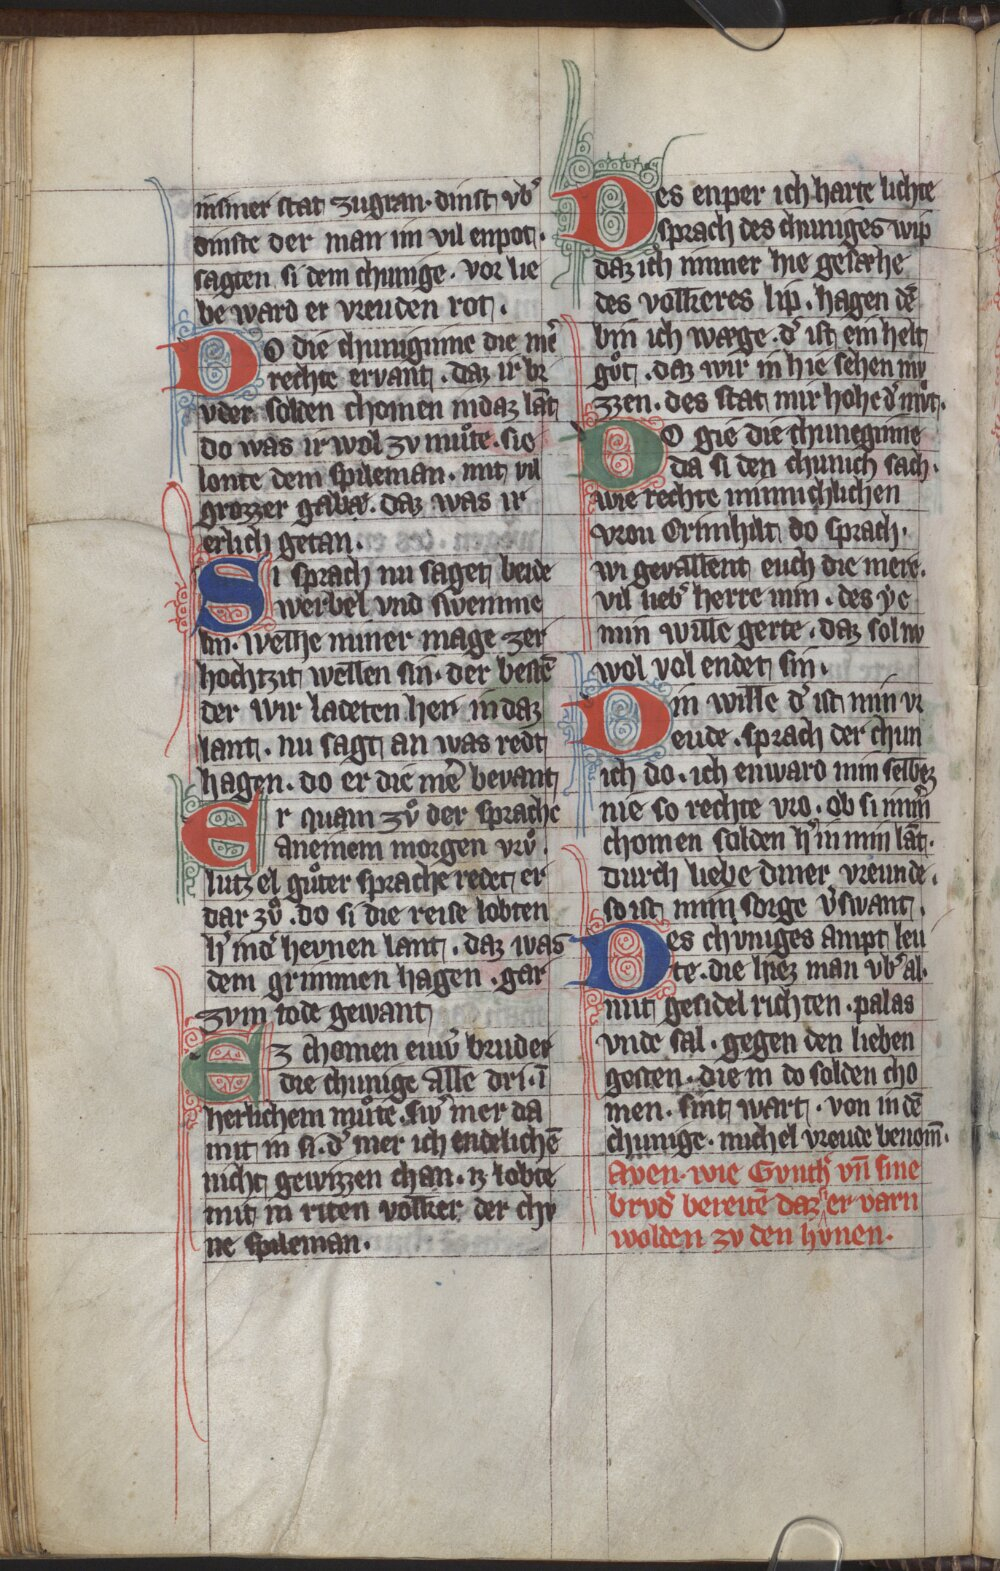 insiner stat zugran. dinst vb̾
dinste der man im vil enpot.
sagten si dem chunige. vor lie
be ward er vreuden rot.
Do die chuniginne die me̾
rechte ervant. daz ir br
vder solden chomen indaz la̅t
do was ir wol zv muͦte. sie
lonte dem spileman. mit vil
grozzer gaba̾. daz was ir
erlich getan.
Si sprach nu saget beide
werbel vnd swemme
lin. welhe miner mage zer
hochtzit wellen sin. der beste̅
der wir ladeten heri indaz
lant. nu sagt an was redt
hagen. do er die me̾ bevant
Er quam zvͦ der sprache
aneinem morgen vrvͦ.
lutzel guͦter sprache redet er
dar zvͦ. do si die reise lobten
h̾ ind̾ hevnen lant. daz was
dem grimmen hagen. gar
zvm tode gewant
Ez chomen eiuw̾ bruder
die chunige alle dri. i̅
herlichem muͦte. sw̾ mer da
mit in si. d̾ mer ich endeliche̅
nicht gewizzen chan. iz lobte
mit in riten volker der chv
ne spileman.
Des enper ich harte lichte
sprach des chuniges wip
daz ich immer hie gesæhe
des volkeres lip. hagen de̅
bin ich wæge. d̾ ist ein helt
gvͦt. daz wir in hie sehen mv
zzen. des stat mir hohe d̾ mvt.
Do gie die chuneginne
da si den chunich sach.
wie rechte minnichlichen
vron Crimhilt do sprach.
wi gevallent euch die mere.
vil lieb̾ herre min. des ye
min wille gerte. daz sol nv
wol vol endet sin.
Din wille d̾ ist min vr
eude. sprach der chun
ich do. ich enward min selbez
nie so rechte vro. ob si imm̾
chomen solden h̾ in min la̅t.
durch liebe diner vreunde.
so ist min sorge v̾swant.
Des chvniges ampt leu
te. die hiez man vb̾ al.
mit gesidel richten. palas
vnde sal. gegen den lieben
gesten. die in do solden cho
men. sint wart. von in de̅
chunige. michel vreude benom̅.
Aven. wie Gvnth̾ vn̅ sine
brvd̾ bereite̅ daz er varn
wolden zv den hvnen.